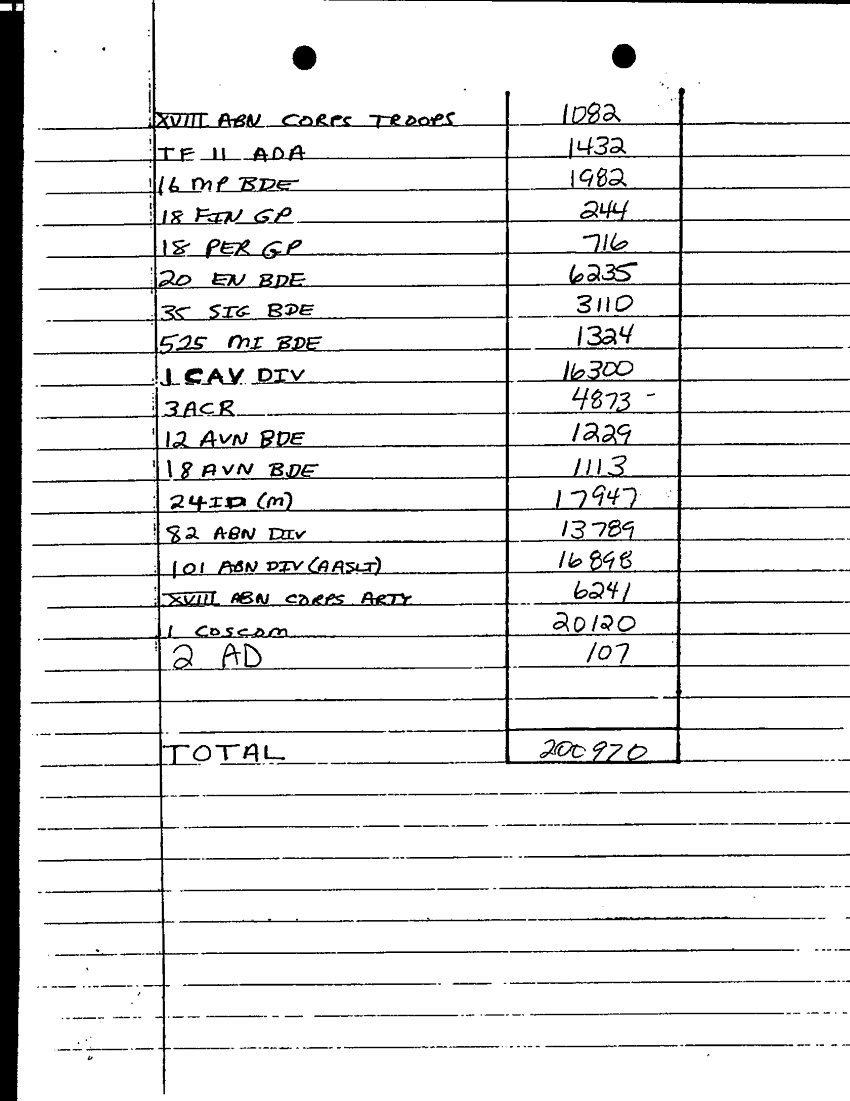 XVIII ABN CORPS TROOPS 1082
TF 11 ADA 1432
16 MP BDE 1982
18 FIN GP 244
18 PER GP 716
20 EN BDE 6235
35 SIG BDE 3110
525 MI BDE 1324
1 CAV DIV 16300
3 ACR 4873 -
12 AVN BDE 1229
18 AVN BDE 1113
24 ID (M) 17947
82 ABN DIV 13789
101 ABN DIV (AASLT) 16898
XVIII ABN CORPS ARTY 6241
1 COSCOM 20120
2 AD 107
TOTAL 200970